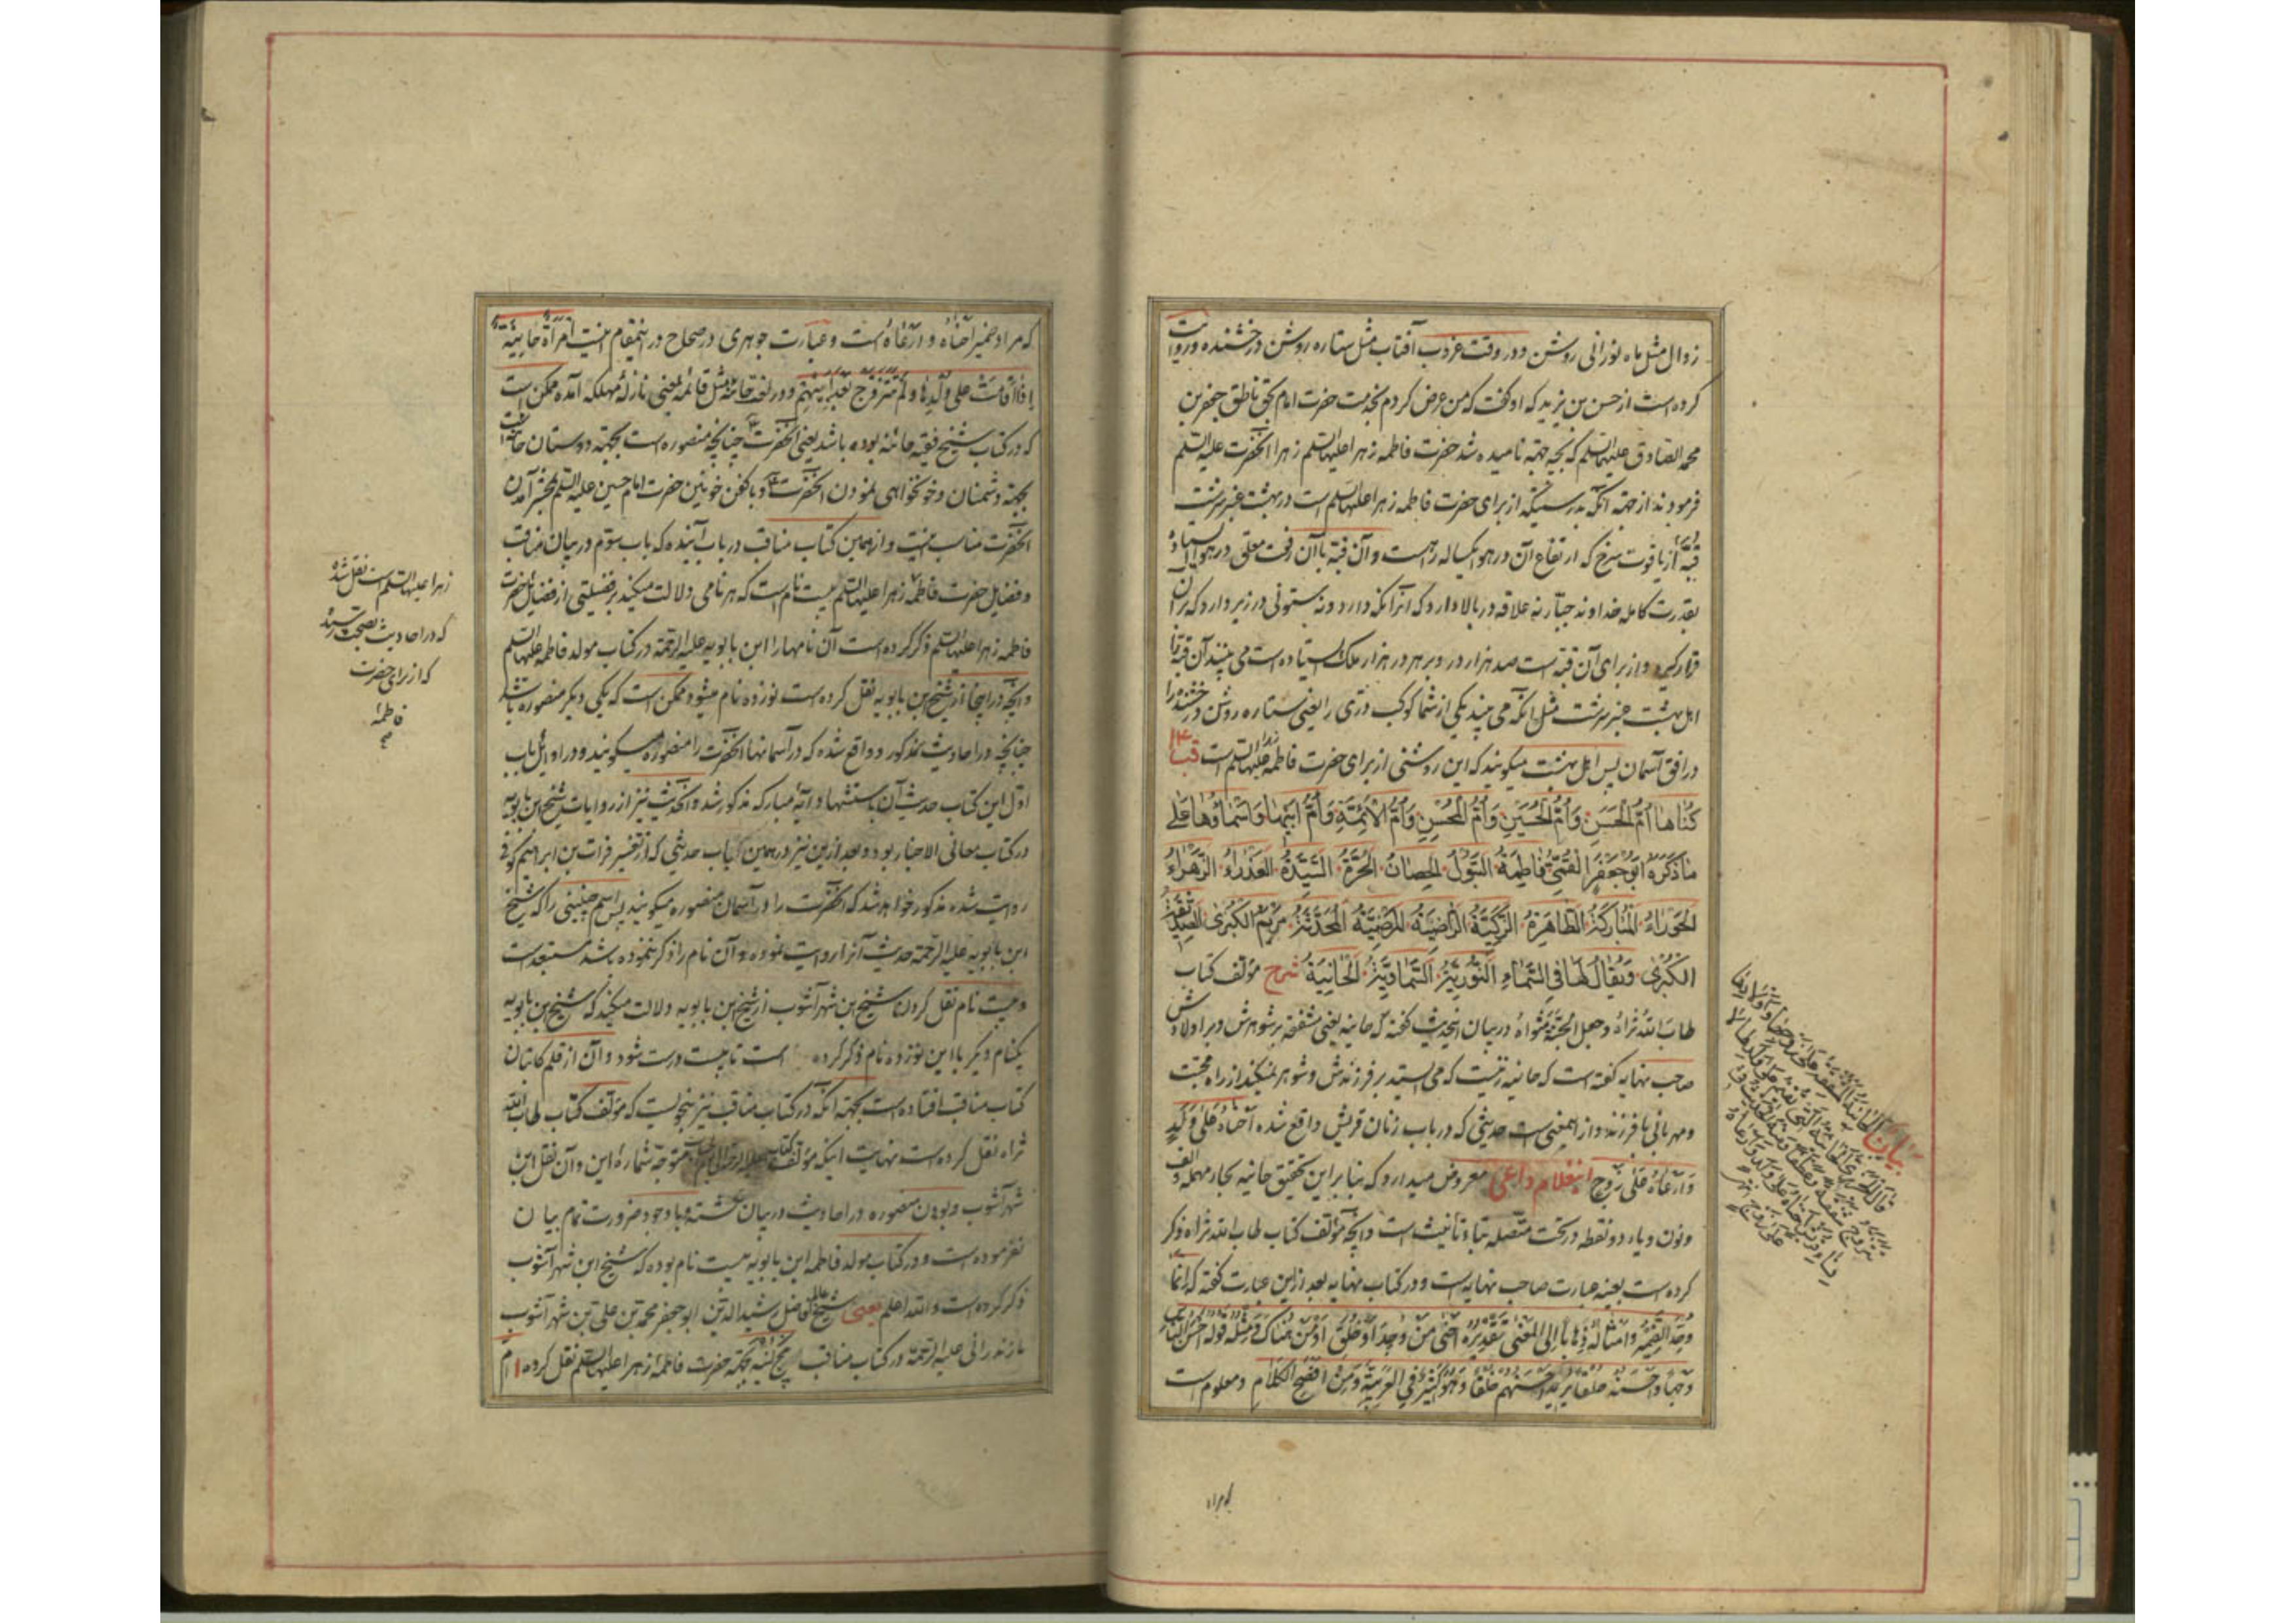 زوال مثل ماه نورانی روشن و در وقت غروب آفتاب مثل ستاره روشن درخشنده و روایت
کرده است از حسن بن یزید که او گفت که من عرض کردم بخدمت حضرت امام بحق ناطق جعفر بن
محمد الصادق علیهما السلم که بچه جهته نامیده شد حضرت فاطمه زهرا علیها السلم زهرا آنحضرت علیه السلم
فرمودند از جهته آنکه بدرستیکه از برای حضرت فاطمه زهرا علیها السلم است در بهشت عنبر سرشت
قبّهٔ از یاقوت سرخ که ارتفاع آن در هوا یکساله راه است و آن قبه با آن رفعت معلق در هوا ایستاده
بقدرت کامله خداوند جبّار نه علاقه در بالا دارد که آنرا نگه دارد و نه ستونی در زیر دارد که بر آن
قرار گیرد و از برای آن قبّه است صد هزار در و بر هر در هزار ملک ایستاده است می بینند آن قبه را
اهل بهشت عنبر سرشت مثل آنکه می بیند یکی از شما کوکب دری را یعنی ستاره روشن درخشنده را
در افق آسمان پس اهل بهشت میگویند که این روشنی از برای حضرت فاطمه زهرا علیها السلم است قب
کُناها اُمُّ الحَسَنِ وَاُمُّ الحُسَینِ وَاُمُّ المُحسِنِ وَاُمُّ الاَئِمَّةِ وَاُمُّ اَبیها وَاَسماؤُها عَلی
ما ذَکَرَهُ اَبو جَعفَرٍ القُمّیُّ فاطِمَةُ البَتولُ الحِصانُ الحُرَّةُ السَّیِّدَةُ العَذراءُ الزَّهراءُ
الحَوراءُ المُبارَکَةُ الطّاهِرَةُ الزَّکِیَّةُ الرّاضِیَةُ المَرضِیَّةُ المُحَدَّثَةُ مَریَمُ الکُبری الصِّدّیقَةُ
الکُبری وَیُقالُ لَها فِی السَّماءِ النّورِیَّةُ السَّماوِیَّةُ الحانِیَةُ شرح مؤلف کتاب
طاب الله ثراه و جعل الجنّة مثواه در بیان اینحدیث گفته که حانیه یعنی مشفقه بر شوهرش و بر اولادش
صاحب نهایه گفته است که حانیه زنیست که می ایستد بر فرزندش و شوهر نمیکند از راه محبت
و مهربانی با فرزند و از اینمعنی است حدیثی که در باب زنان قریش واقع شده اَحناهُ عَلی وَلَدٍ
وَاَرعاهُ عَلی زَوجٍ اینغلام داعی معروض میدارد که بنا بر این تحقیق حانیه بحاء مهمله و الف
و نون و یاء دو نقطه در تحت متصله بتاء تانیث است و آنچه مؤلف کتاب طاب الله ثراه ذکر
کرده است بعینه عبارت صاحب نهایه است و در کتاب نهایه بعد از این عبارت گفته که انّما
وحّد الضّمیر و امثاله ذهابا الی المعنی تقدیره احنی من وجد او خلق او من هناک و مثله قوله احسن الناس
وجها و احسنه خلقا یرید احسنهم خلقا و هو کثیر فی العربیة و من افصح الکلام و معلوم است
که مراد
که مراد ضمیر احناه و ارعاه است و عبارت جوهری در صحاح در اینمقام اینست امراة حانیة
اذا اقامت علی ولدها و لم تتزوج بعد ابیهم و در لغة حائنه مثل قائمه بمعنی نازلهٔ مهلکه آمده ممکن است
که در کتاب شیخ فقیه حائنه بوده باشد یعنی آنحضرت چنانچه منصوره است بجهته دوستان
بجهته دشمنان و خونخواهی نمودن آنحضرت و با کفن خونین حضرت امام حسین علیه السلم بمحشر آمدن
آنحضرت مناسب نیست و از همین کتاب مناقب در باب آینده که باب سوّم در بیان مناقب
و فضایل حضرت فاطمه زهرا علیها السلم بیست نام است که هر نامی دلالت میکند بر فضیلتی از فضایل حضرت
فاطمه زهرا علیها السلم ذکر کرده است آن نامها را ابن بابویه علیه الرحمة در کتاب مولد فاطمه علیها السلم
و آنچه در اینجا از شیخ بن بابویه نقل کرده است نوزده نام میشود ممکن است که یکی دیگر منصوره باشد
چنانچه در احادیث مذکور و واقع شده که در آسمانها آنحضرت را منصوره میگویند و در اوایل باب
اول این کتاب حدیث آن باستشهاد آیهٔ مبارکه مذکور شد و آنحدیث نیز از روایات شیخ ابن بابویه
در کتاب معانی الاخبار بود و بعد از این نیز در همین کتاب حدیثی که از تفسیر فرات بن ابراهیم کوفی
روایت شده مذکور خواهد شد که آنحضرت را در آسمان منصوره میگویند پس اسم چنینی را که شیخ
ابن بابویه علیه الرحمة حدیث آنرا روایت نموده و آن نام را ذکر ننموده باشد مستبعد است
و بیست نام نقل کردن شیخ بن شهر آشوب از شیخ ابن بابویه دلالت میکند که شیخ ابن بابویه
یکنام دیگر با این نوزده نام ذکر کرده است تا بیست درست شود و آن از قلم کاتبان
کتاب مناقب افتاده است بجهته آنکه در کتاب مناقب نیز بنحویست که مؤلف کتاب طاب الله
ثراه نقل کرده است نهایت اینکه مؤلف کتاب متوجه شمارهٔ این و آن نقل ابن
شهر آشوب و بودن منصوره در احادیث در بیان نگشته و با وجود ضرورت تمام بیان
نفرموده است و در کتاب مولد فاطمه ابن بابویه بیست نام بوده که شیخ ابن شهر آشوب
ذکر کرده است و الله اعلم یعنی شیخ عالم فاضل رشید الدین ابو جعفر محمد بن علی بن شهر آشوب
مازندرانی علیه الرحمة در کتاب مناقب پنج کنیه بجهته حضرت فاطمه زهرا علیها السلم نقل کرده ام
زهرا علیها السلم است نقل شده
که در احادیث بصحت رسیده
که از برای حضرت
فاطمه